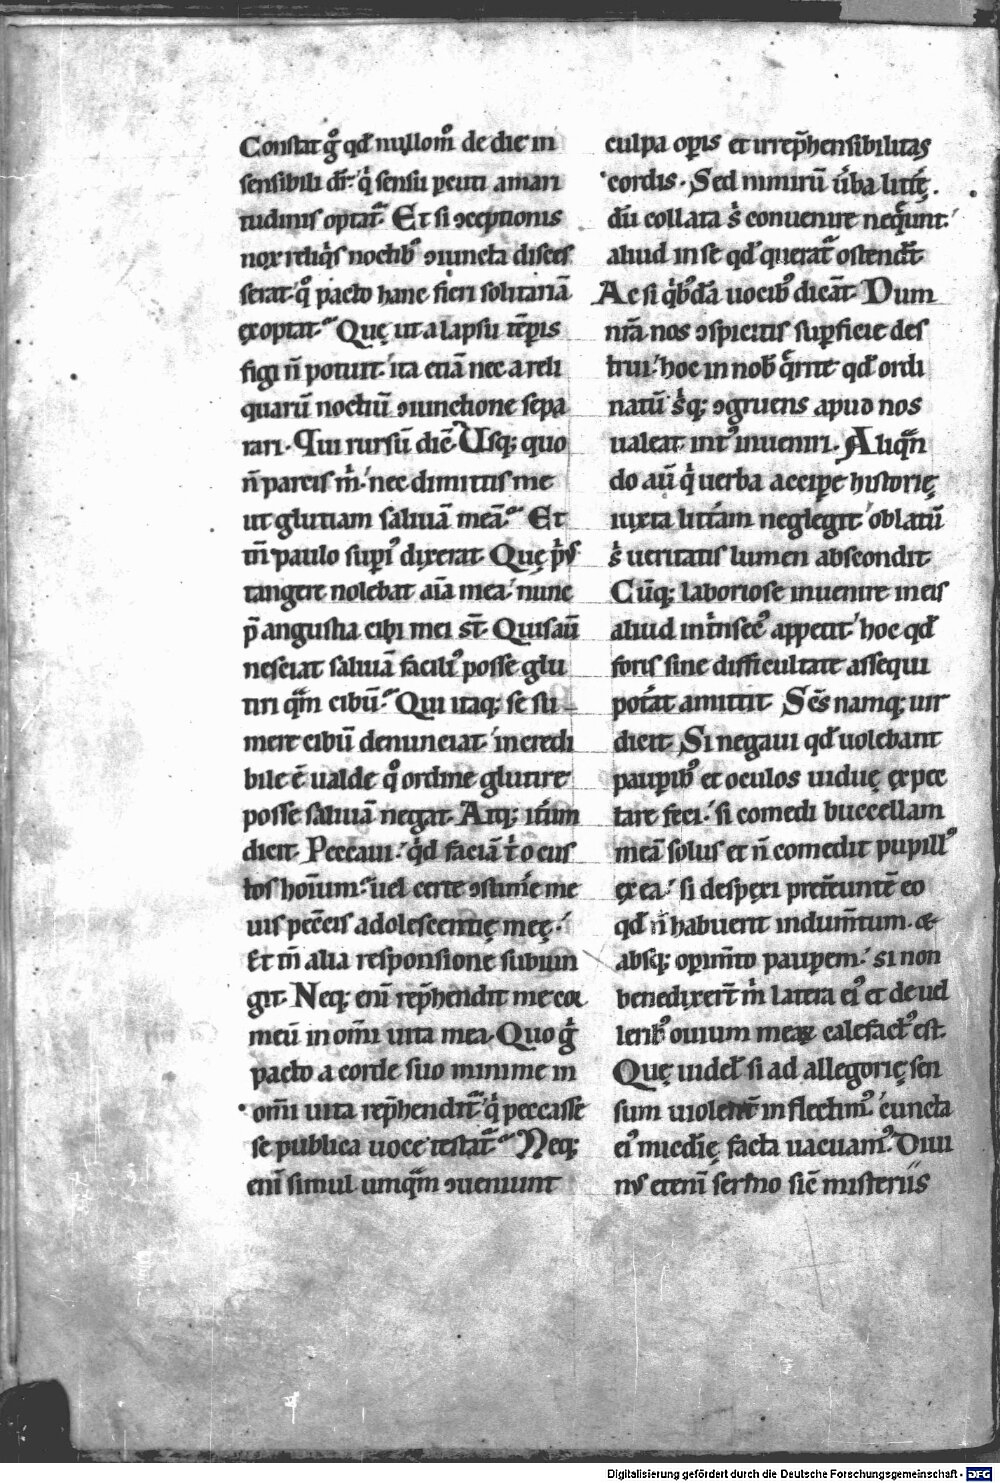 Constat gͦ qd̄ nullom̊ de die in
sensibili dr̄. q̇ sensu pcuti amari
tudinis optat᷑. Et si ɔceptionis
nox reliq̇s noctibꝰ ɔiuncta disces
serat. qͦ pacto hanc fieri solitariā
ęxoptat. Quę ut a lapsu tēporis
figi n̄ potuit. ita etiā nec a reli
quarū noctiū ɔiunctione sepa
rari. Qui rursū diē. Usq; quo
n̄ parcis m̍. nec dimittis me
ut glutiam saliuā meā. Et
tm̄ paulo supꝰi dixerat. Quę pͥꝰ
tangere nolebat aīa mea. nunc
p̄ angustia cibi mei st̄. Quis aū
nesciat saliuā faciliꝰ posse glu
tiri qᷓm cibū. Qui itaq; se su
mere cibū denunciat. incredi
bile ē ualde qͦ ordine glutire
posse saliuā negat. Atq; itꝰum
dicit. Peccaui. q̍d faciā t̍ o cus
tos hoīum. uel certe ɔsumꝰe me
uis peccīs adolescentię meę.
Et m̄ alia responsione subiun
git. Neq; enī rep̄hendit me cor
meū in omī uita mea. Quo g̊
pacto a corde suo minime in
omī uita rep̄hendit᷑. q̍ peccasse
se publica uoce testat᷑. Neq;
enī simul umqᷓm ɔueniunt
culpa opis et irrep̄hensibilitas
cordis. Sed nimirū ūba litt̄ę.
dū collata s̍ conuenire neq̍unt.
aliud in se qd̄ querat᷑ ostendt̄.
Ac si q̍bꝰdā uocibꝰ dicāt. Dum
nr̄a nos ɔspicitis supficie des
trui. hoc in nobꝰ q̍rite qd̄ ordi
natū s̍q; ɔgruens apud nos
ualeat intꝰ inueniri. Aliqᷓn
do aū q̍ uerba accipe historię
iuxta litt̄am neglegit. oblatū
s̍ ueritatis lumen abscondit.
Cū̄q; laboriose inuenire in eis
aliud int̍nsecꝰ appetit. hoc qd̄
foris sine difficultate assequi
potꝰat amittit. Sc̄s namq; uir
dicit. Si negaui qd̄ uolebant
paupibꝰ et oculos uiduę expec
tare feci. si comedi buccellam
meā solus et n̄ comedit pupillꝰ
ęx ea. si despęxi pret̄euntē eo
qd̄ n̄ habuerit indum̄tum. &
absq; opim̄to paupem. si non
benedixert̄ m̍ latera eiꝰ et de uel
leribꝰ ouium meaꝝ calefactꝰ est.
Quę uidel̄. si ad allegorię sen
sum uiolent̄ inflectimꝰ. cuncta
eiꝰ mīcdię facta uacuamꝰ. Diui
nꝰ etenī sermo sic̄ misteriis
Digitalisierung gefördert durch die Deutsche Forschungsgemeinschaft - DFG